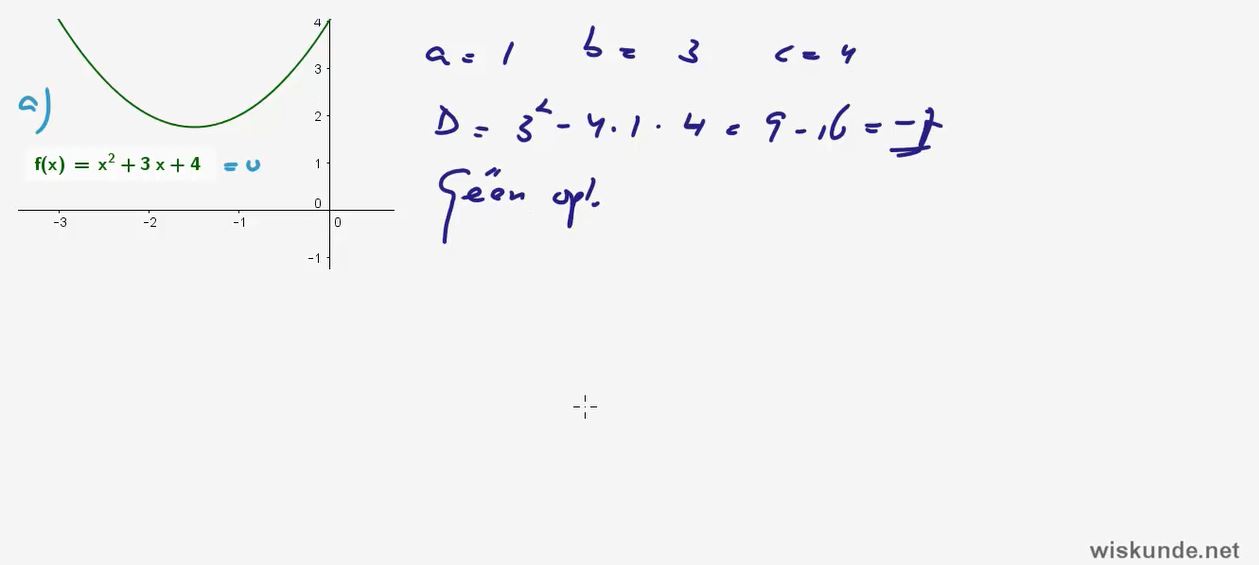 a)
f(x) = x² + 3 x + 4 = 0
4
3
2
1
0
-1
-3 -2 -1 0
a = 1 b = 3 c = 4
D = 3² - 4 · 1 · 4 = 9 - 16 = -7
Géén opl.
wiskunde.net